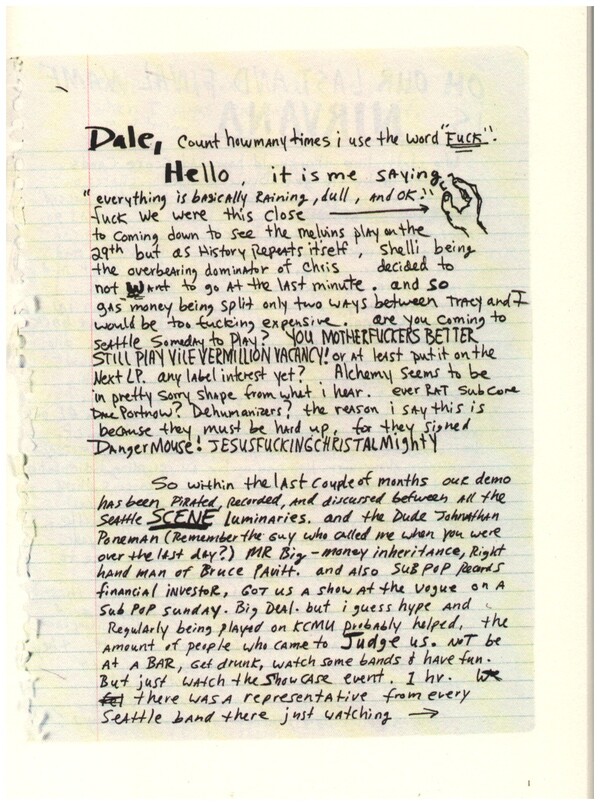 OH OUR LAST AND FINAL NAME
IS NIRVANA
Dale, Count how many times i use the word "FUCK".
Hello, it is me saying
"everything is basically Raining, dull, and OK."
fuck we were this close
to coming down to see the melvins play on the
29th but as History Repeats itself, Shelli being
the overbearing dominator of Chris decided to
not Want to go At the last minute. and so
gas money being split only two ways between TRACY and I
would be too fucking expensive. are you coming to
seattle Someday to Play? YOU MOTHERFUCKERS BETTER
STILL PLAY VILE VERMILLION VACANCY! or at least put it on the
Next LP. any label interest yet? Alchemy seems to be
in pretty sorry shape from what i hear. ever RAT Subcore
Portnow? Dehumanizers? the reason i say this is
because they must be hard up, for they signed
DangerMouse! JESUSFUCKINGCHRISTALMighty
So within the last couple of months our demo
has been PiRATed, Recorded, and discussed between all the
Seattle SCENE luminaries. and the Dude Johnathan
Poneman (Remember the guy who called me when you were
over the last day?) MR Big-money inheritance, Right
hand man of Bruce PAvitt. and also SUB POP Records
financial investor, GOT us a show At the Vogue on A
Sub POP sunday. Big DeAl. but i guess hype and
Regularly being played on KCMU probably helped, the
amount of people who came to Judge us. NOT be
At A BAR, Get drunk, watch some bands & have fun.
But just watch the Showcase event. 1 hr. We
there was a representative from every
Seattle band there just watching →
1